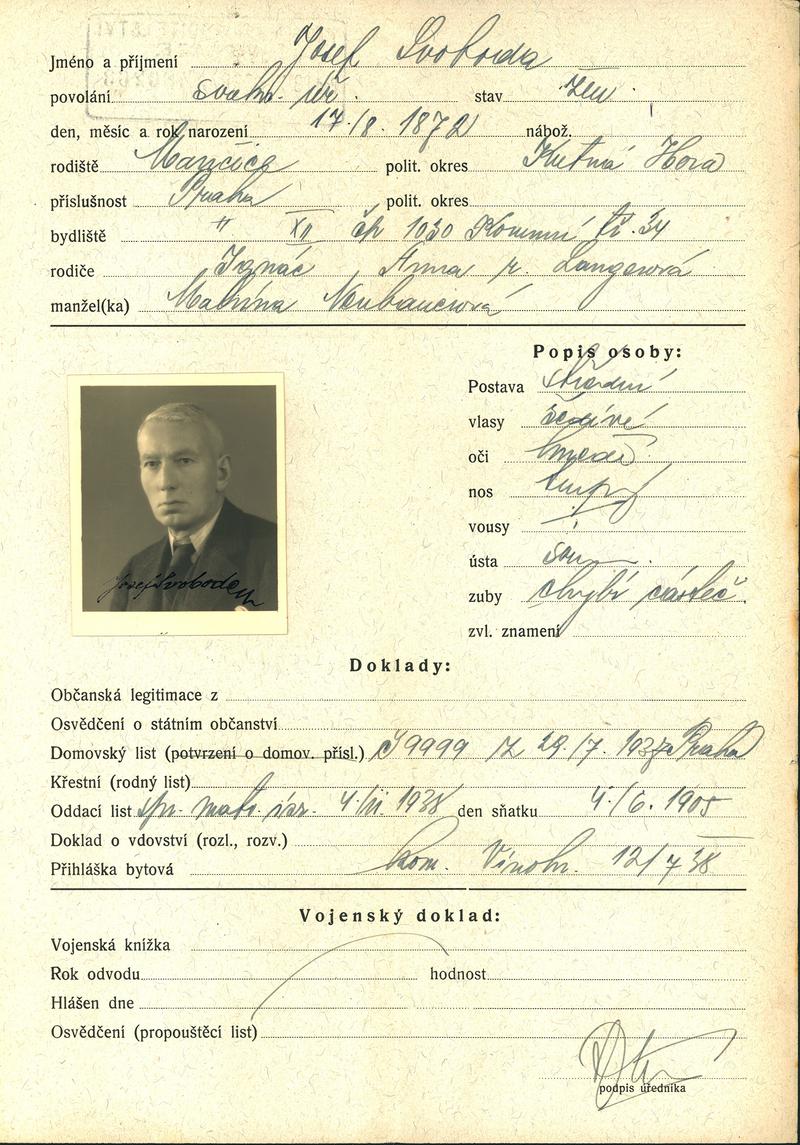 Jméno a příjmení Josef Svoboda
povolání soukr. úř. stav žen.
den, měsíc a rok narození 17./8. 1872 nábož.
rodiště polit. okres Kutná Hora
příslušnost Praha polit. okres
bydliště " XII čp 1030 tř. 34
rodiče Ignác Anna r. Langerová
manžel(ka) Neubauerová
Popis osoby:
Postava střední
vlasy šedivé
oči
nos
vousy
ústa
zuby chybí částeč.
zvl. znamení
Josef Svoboda
Doklady:
Občanská legitimace z
Osvědčení o státním občanství
Domovský list (potvrzení o domov. přísl.) 9999 z 29./7. Praha
Křestní (rodný list)
Oddací list 1938 den sňatku 4./6. 1905
Doklad o vdovství (rozl., rozv.)
Přihláška bytová kom. Vinohr. 12/7 38
Vojenský doklad:
Vojenská knížka
Rok odvodu hodnost
Hlášen dne
Osvědčení (propouštěcí list)
podpis úředníka